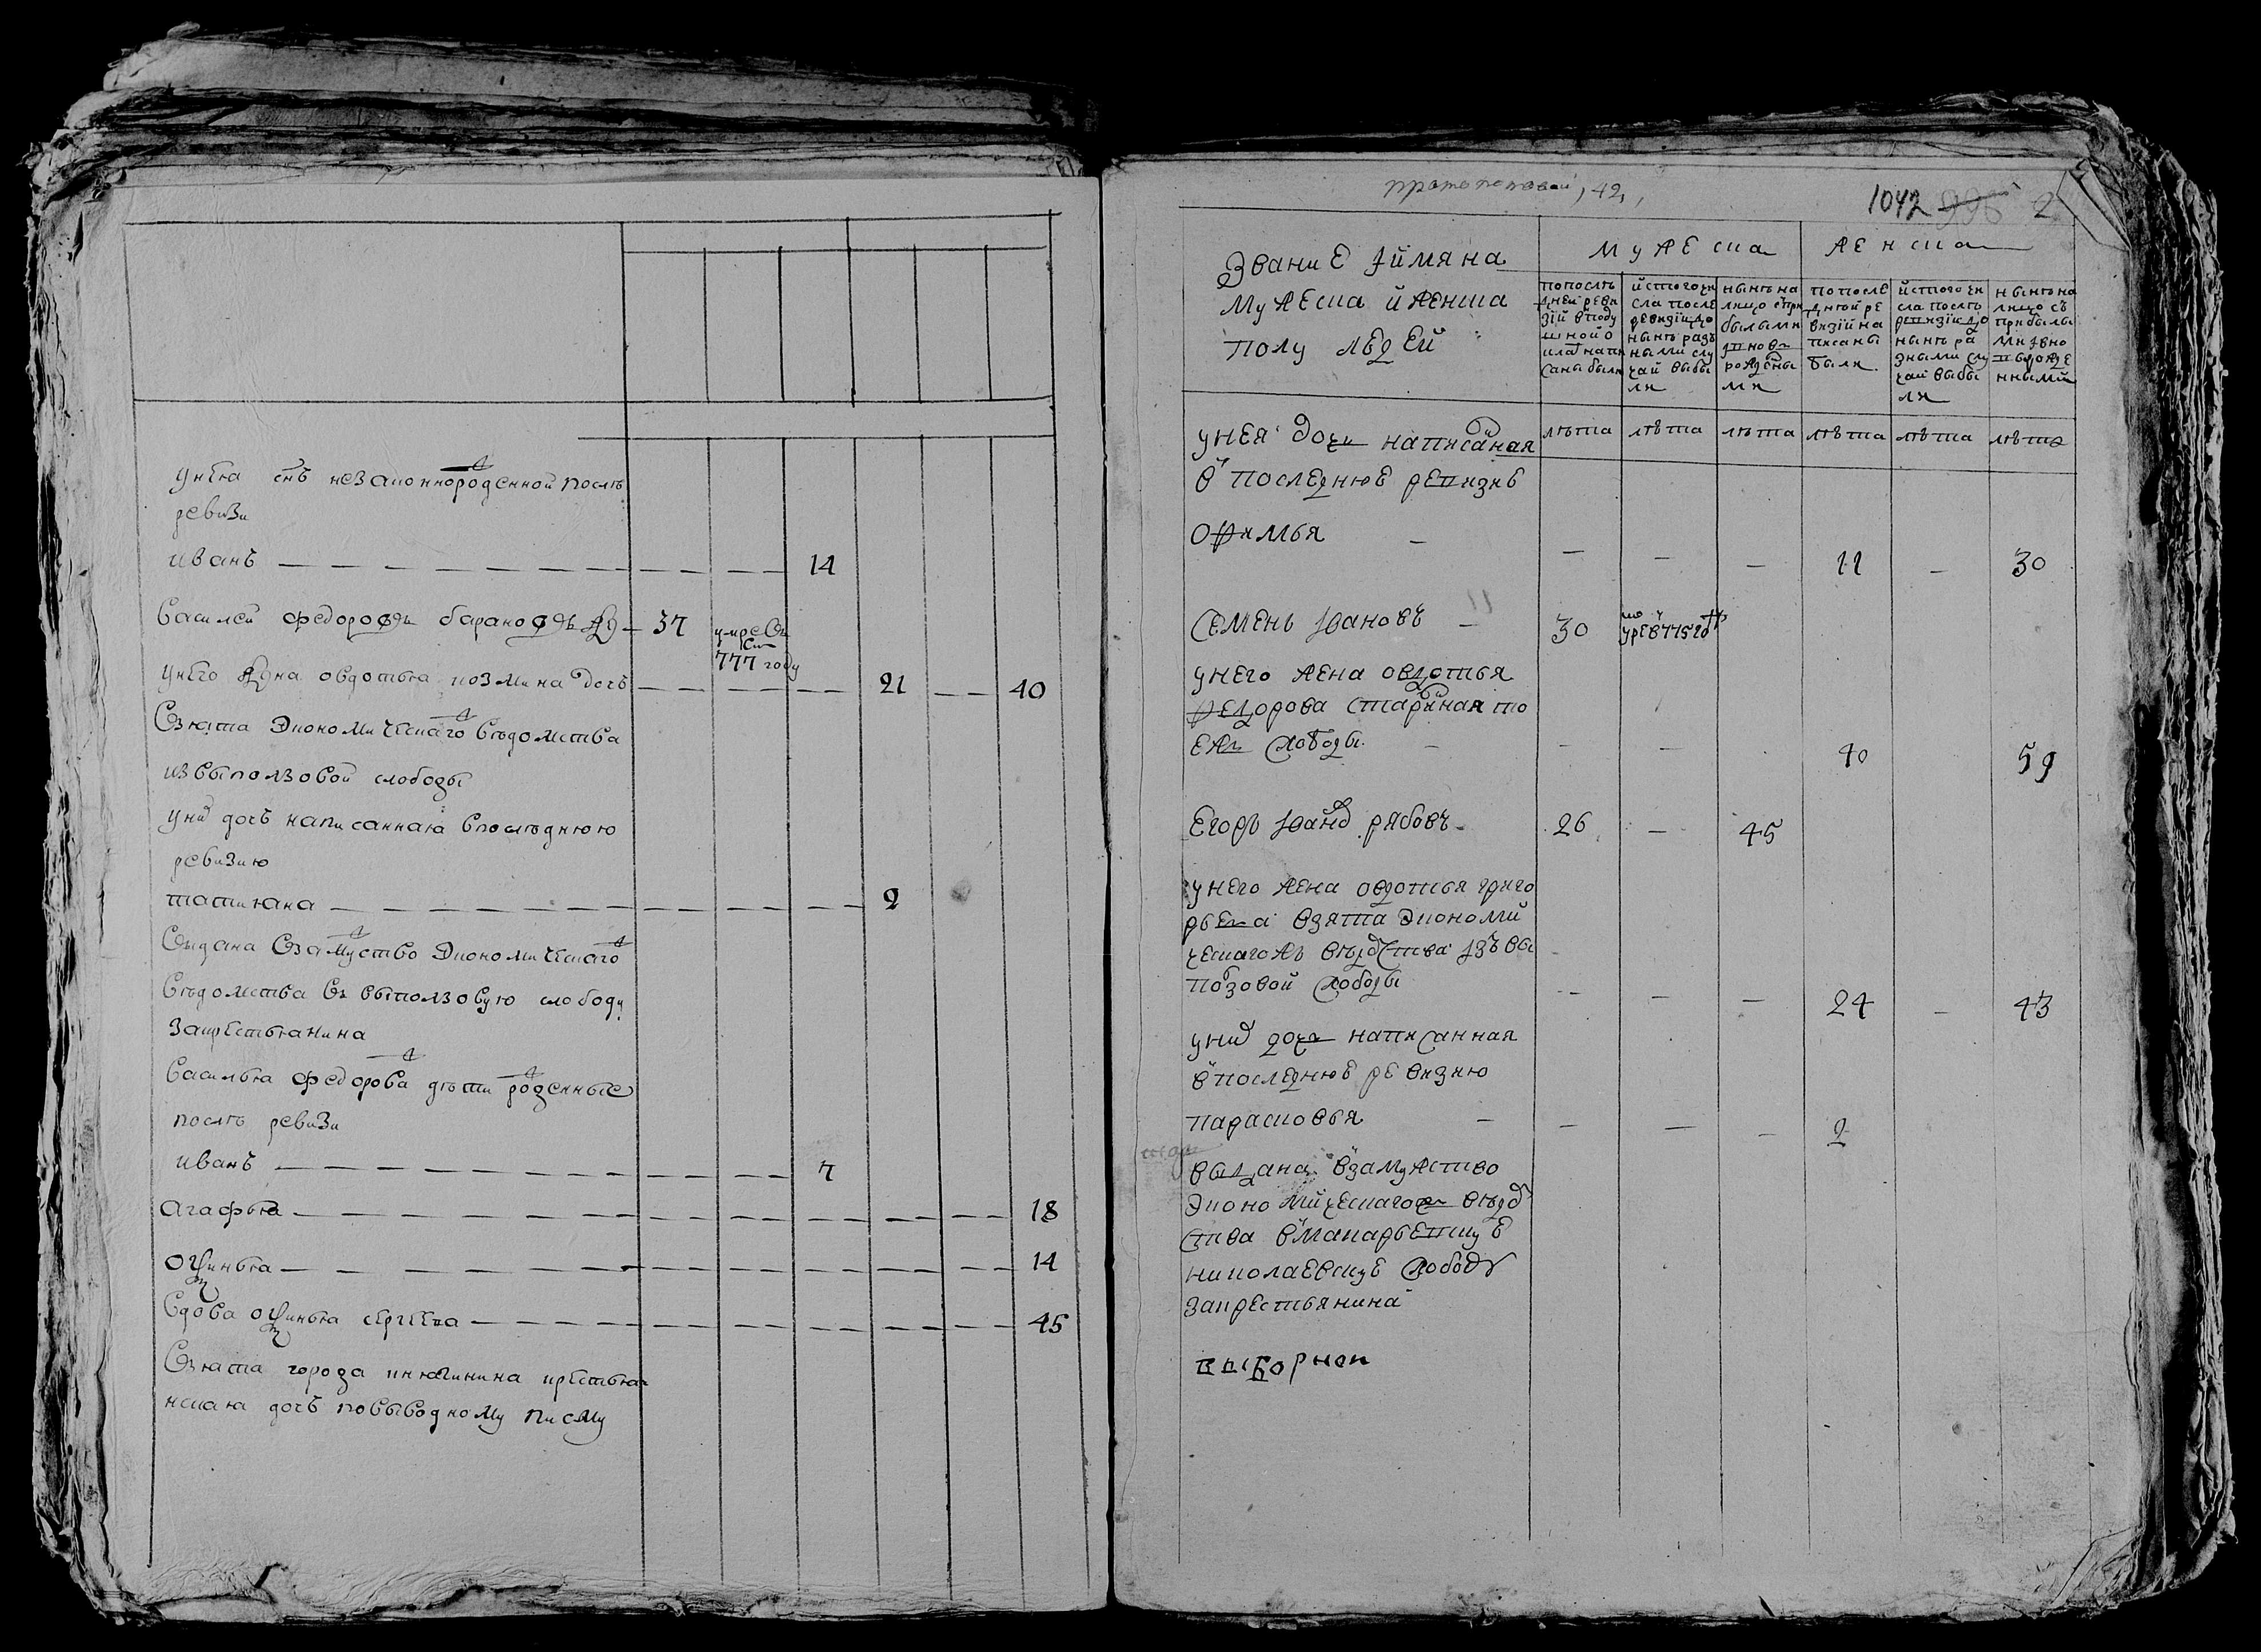 унея снъ незаконнорожденной послѣ
ревизи
иванъ 14
василей федоровъ 37 умре въ
777 году
унего жена овдотья козмина дочь 21 40
взята экономическаго ведомства
из выползовой слободы
уних дочь написанная впоследнюю
ревизию
татияна 2
выдана взамуство экономическаго
ведомства въ выползовую слободу
закрестьянина
василья федорова дѣти рожденные
послѣ ревизи
иванъ 7
агафья 18
14
вдова сергеева 45
взята города крестья
нская дочь повыводному писму
протопоповой 42
1042 995 2
Звание и имяна
мужеска и женска
полу людей
мужеска женска
попослѣ
дней реви
зий вподу
шной о
клад напи
саны были
и стого чи
сла после
ревизии до
нынѣ разъ
ными слу
чаи выбы
ли
нынѣ на
лицо спри
былыми
и вновь
рожденны
ми
попосле
дней ре
визии на
писаны
были
и стого чи
сла послѣ
ревизии до
нынѣ ра
зными слу
чаи выбы
ли
нынѣ на
лицо съ
прибылы
ми и вно
вь рожде
нными
лѣта лѣта лѣта лѣта лѣта лѣта
унея дочь написаная
в последнюе ревизие
офимья 11 30
Семенъ Ивановъ 30
унего жена овдотья
федорова старинная то
еж слободы 40 59
Егоръ Иванов рябовъ 26 45
унего жена овдотья григо
рьева взята экономи
ческагожъ ведомства изъ вы
ползовой слободы 24 43
уних дочь написанная
впоследнюе ревизию
парасковья 2
выдана взамужство
экономическагож ведом
ства
николаевскуе слободу
закрестьянина
выборнои